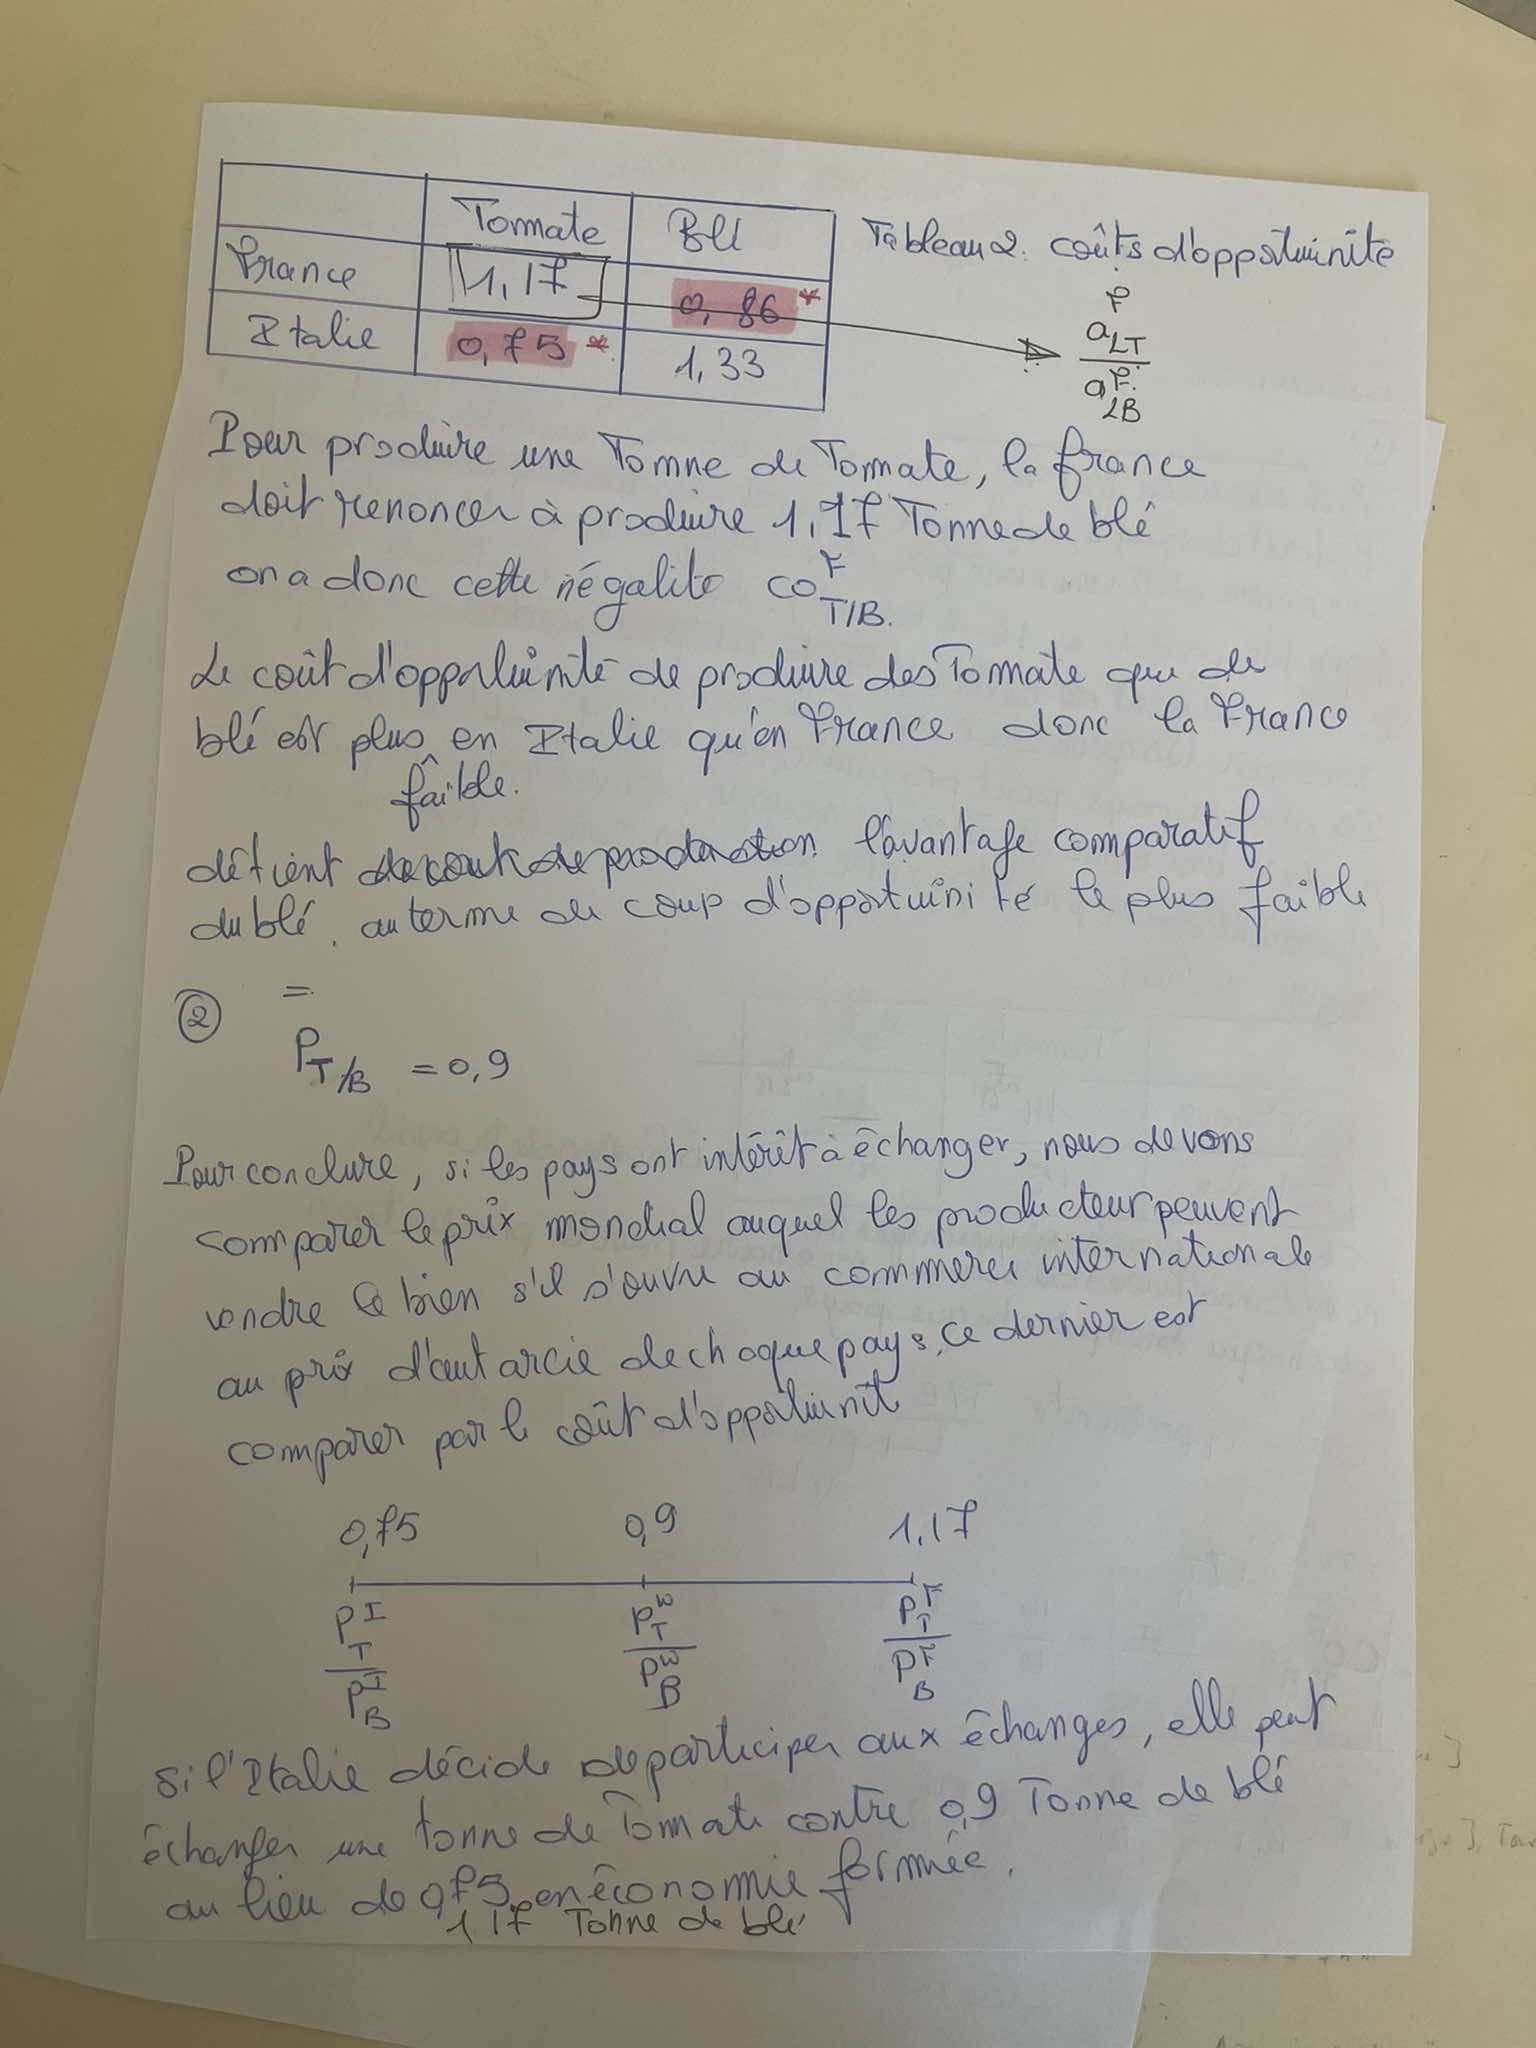 Tomate Blé
France 1,17 0,86 *
Italie 0,75 * 1,33
Tableau 2. coûts d'opportuinité
a^F_LT
a^F_LB
Pour produire une Tonne de Tomate, la france
doit renoncer à produire 1,17 Tonne de blé
on a donc cette négalité CO^F_T/B.
Le coût d'opportuinité de produire des Tomate que de
blé est plus en Italie qu'en France donc la France
faîble.
détient l'avantage comparatif
du blé. au terme de coup d'opportuinité le plus faible
② =
P_T/B = 0,9
Pour conclure, si les pays ont intérêt à échanger, nous devons
comparer le prix mondial auquel les producteur peuvent
vendre le bien s'il s'ouvre au commerce internationale
au prix d'autarcie de chaque pays, ce dernier est
comparer par le coût d'opportuinit
0,75 0,9 1,17
P^I_T P^W_T P^F_T
P^I_B P^W_B P^F_B
si l'Italie décide de participer aux échanges, elle peut
échanger une tonne de Tomate contre 0,9 Tonne de blé
au lieu de 0,75 en économie formée.
1,17 Tonne de blé